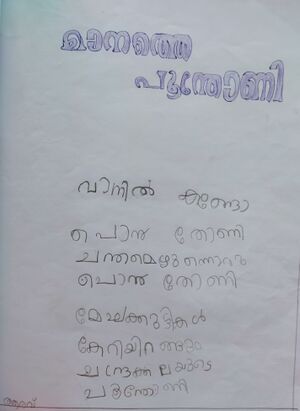 മാനത്തെ
പൂന്തോണി
വാനിൽ കണ്ടോ
പൊന്നു തോണി
ചന്തമെഴുന്നൊരു
പൊന്നു തോണി
മേഘക്കുട്ടികൾ
കേറിയിറങ്ങും
ചന്ദ്രക്കലയുടെ
പൂന്തോണി
ആരവ്